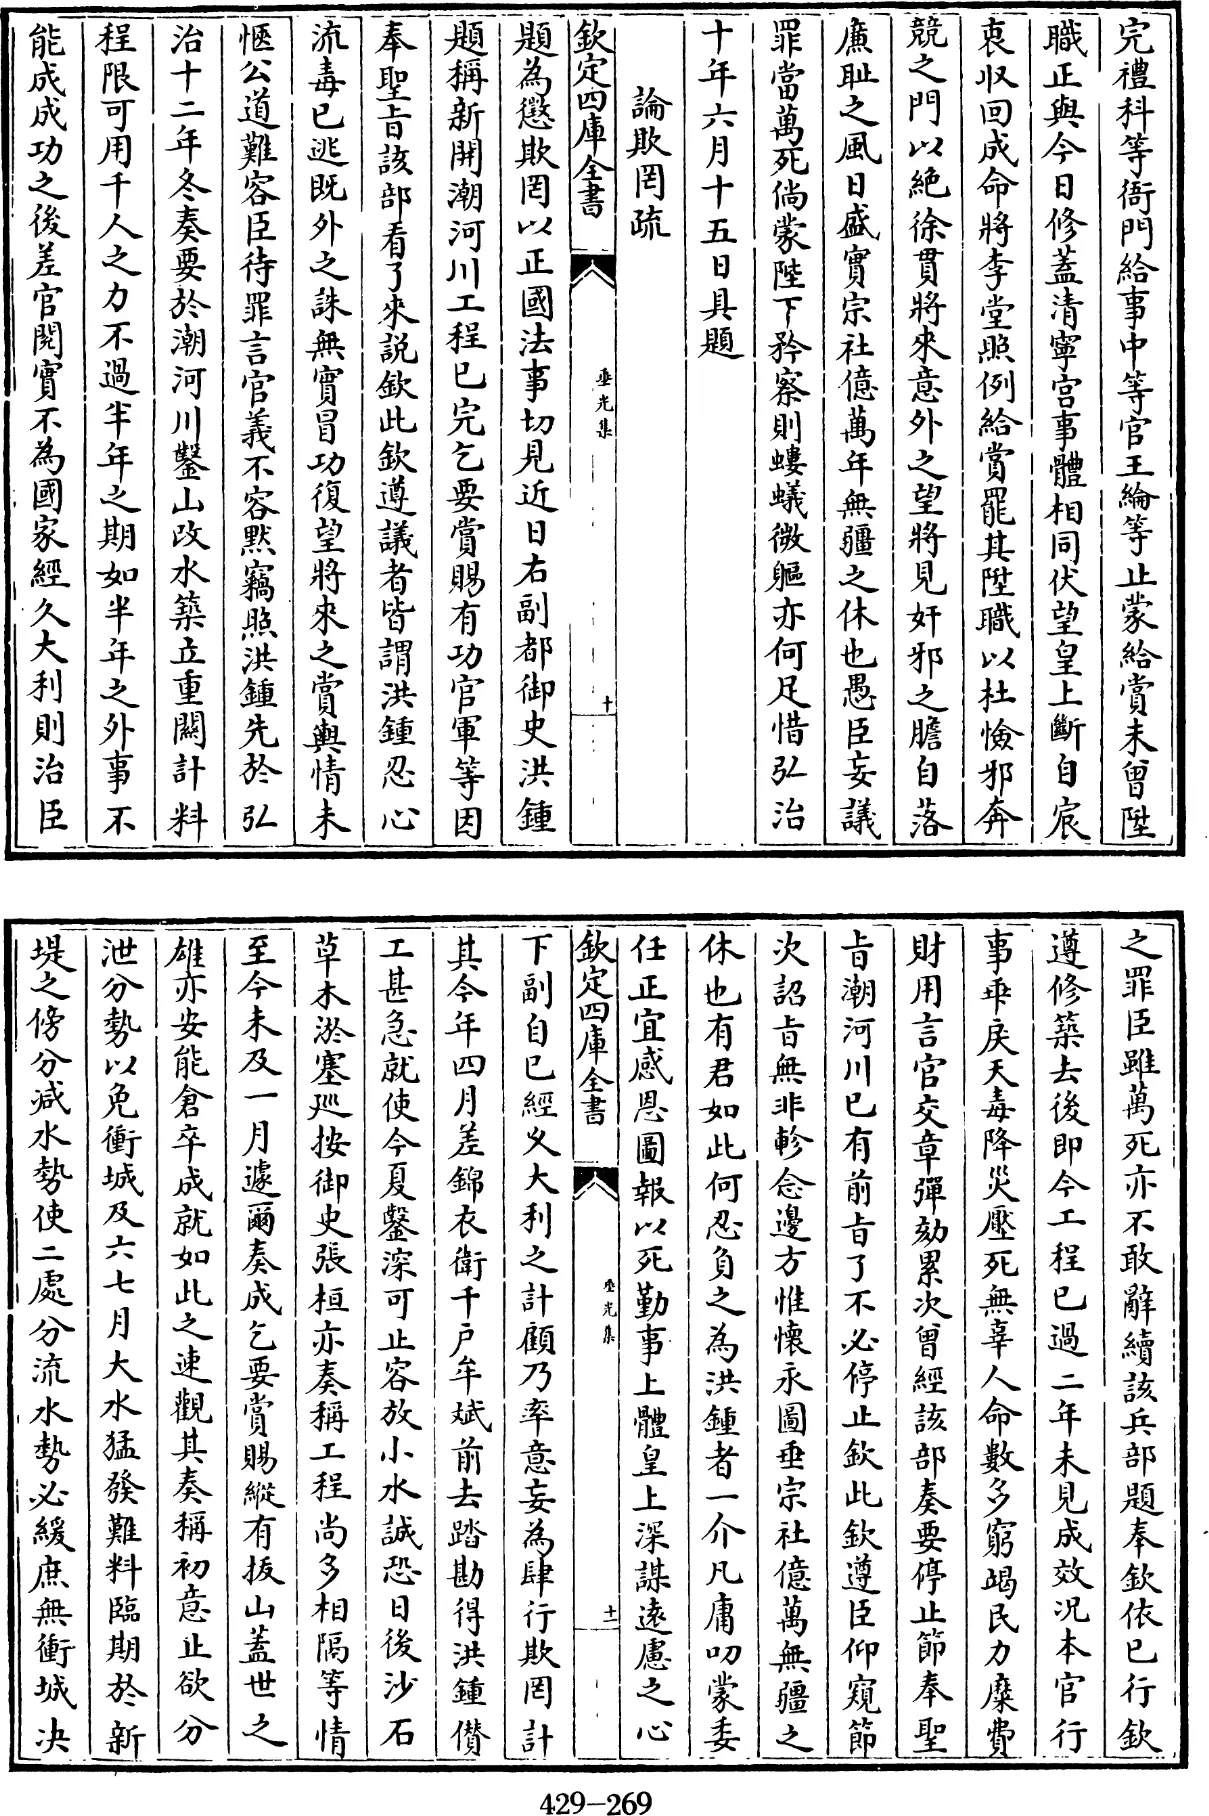 完禮科等衙門給事中等官王綸等止蒙給賞未曾陞
職正與今日修蓋清寧宮事體相同伏望皇上斷自宸
衷收回成命將李堂照例給賞罷其陞職以杜憸邪奔
競之門以絶徐貫將來意外之望將見奸邪之膽自落
廉耻之風日盛實宗社億萬年無疆之休也愚臣妄議
罪當萬死倘蒙陛下矜察則螻蟻微軀亦何足惜弘治
十年六月十五日具題
論欺罔疏
欽定四庫全書
垂光集
十
題為懲欺罔以正國法事切見近日右副都御史洪鍾
題稱新開潮河川工程已完乞要賞賜有功官軍等因
奉聖旨該部看了來説欽此欽遵議者皆謂洪鍾忍心
流毒已逃旣外之誅無實冒功復望將來之賞輿情未
愜公道難容臣待罪言官義不容默竊照洪鍾先於弘
治十二年冬奏要於潮河川鑿山改水築立重關計料
程限可用千人之力不過半年之期如半年之外事不
能成成功之後差官閱實不為國家經久大利則治臣
之罪臣雖萬死亦不敢辭續該兵部題奉欽依已行欽
遵修築去後即今工程已過二年未見成效况本官行
事乖戾天毒降災壓死無辜人命數多窮竭民力糜費
財用言官交章彈劾累次曾經該部奏要停止節奉聖
旨潮河川已有前旨了不必停止欽此欽遵臣仰窺節
次詔旨無非軫念邊方惟懷永圖垂宗社億萬無疆之
休也有君如此何忍負之為洪鍾者一介凡庸叨蒙委
任正宜感恩圖報以死勤事上體皇上深謀遠慮之心
欽定四庫全書
垂光集
十一
下副自已經乂大利之計顧乃率意妄為肆行欺罔計
其今年四月差錦衣衛千戶牟斌前去踏勘得洪鍾儧
工甚急就使今夏鑿深可止容放小水誠恐日後沙石
草木淤塞巡按御史張桓亦奏稱工程尚多相隔等情
至今未及一月遽爾奏成乞要賞賜縱有拔山蓋世之
雄亦安能倉卒成就如此之速觀其奏稱初意止欲分
泄分勢以免衝城及六七月大水猛發難料臨期於新
堤之傍分減水勢使二處分流水勢必緩庶無衝城决
429-269